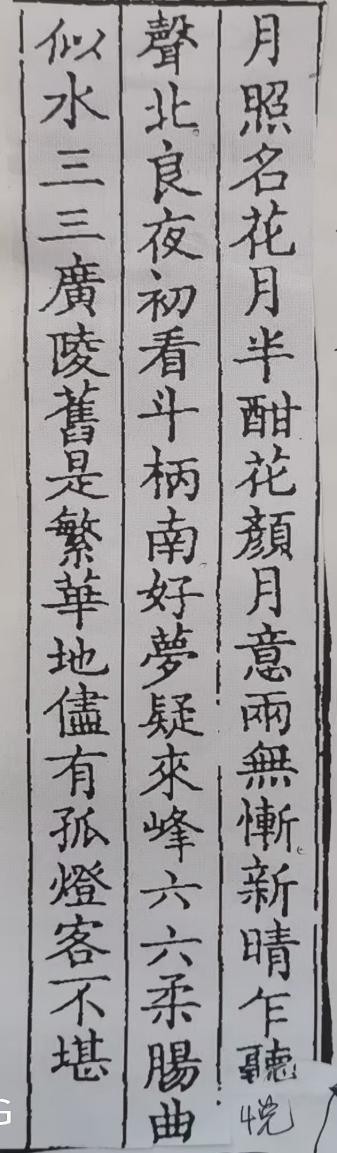 月照名花月半酣花顏月意兩無慚新晴乍聽悦
聲北良夜初看斗柄南好夢疑來峰六六柔腸曲
似水三三廣陵舊是繁華地儘有孤燈客不堪